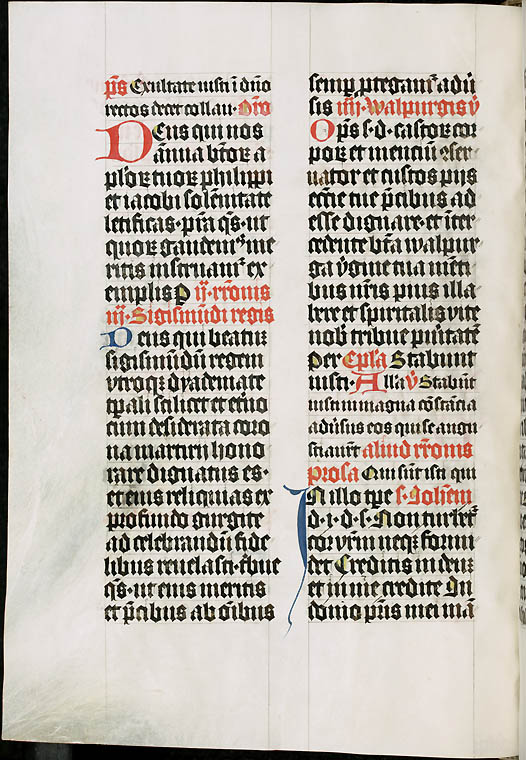 p̄s Exultate iusti ī dn̄o
rectos decet collau· Or̄o
Deus qui nos
ānua bt̄oꝝ a
pl̄oꝝ tuoꝝ philippi
et iacobi sol̄ēnitate
letificas· p̄ta q̄s· ut
quoꝝ gaudemꝰ me
ritis instruamꝰ ex
emplis P ij· rr̄onis
iij· Sigismūdi regis
Deus qui beatū
sigismūdū regem
vtroqꝫ dyademate
tp̄ali scilicet et et̄no
cum desiderata coro
na martirij hono
rare dignatus es·
et eius reliquias ex
profundo gurgite
ad celebrandū fide
libus reuelasti· t̄bue
q̄s· ut eius meritis
et p̄cibus ab oībus
semp̄ ptegamꝰ adū
sis iiij· walpurgis v̄
Op̄s s· d· castoꝝ coꝝ
poꝝ et mentiū ꝯser
uator et custos pijs
ecc̄ie tue p̄cibus ad
esse dignare· et īter
cedente bt̄a walpur
ga v̄gine tua mēti
bus nr̄is pius illa
bere et spiritalis vite
nob̄ tribue puritatē
Per Ep̄la Stabunt
iusti· Alla v̄ Stabūt
iusti in magna cōstācia
adūsus eos qui se angu
stiauer̄t aliud rr̄onis
prosa Qui sūt isti qui
In illo tp̄e s· Joh̄em
d· i· d· s· Non turbet̄
cor vr̄m neqꝫ formi
det Creditis in deū
et in me credite In
domo pr̄is mei mā